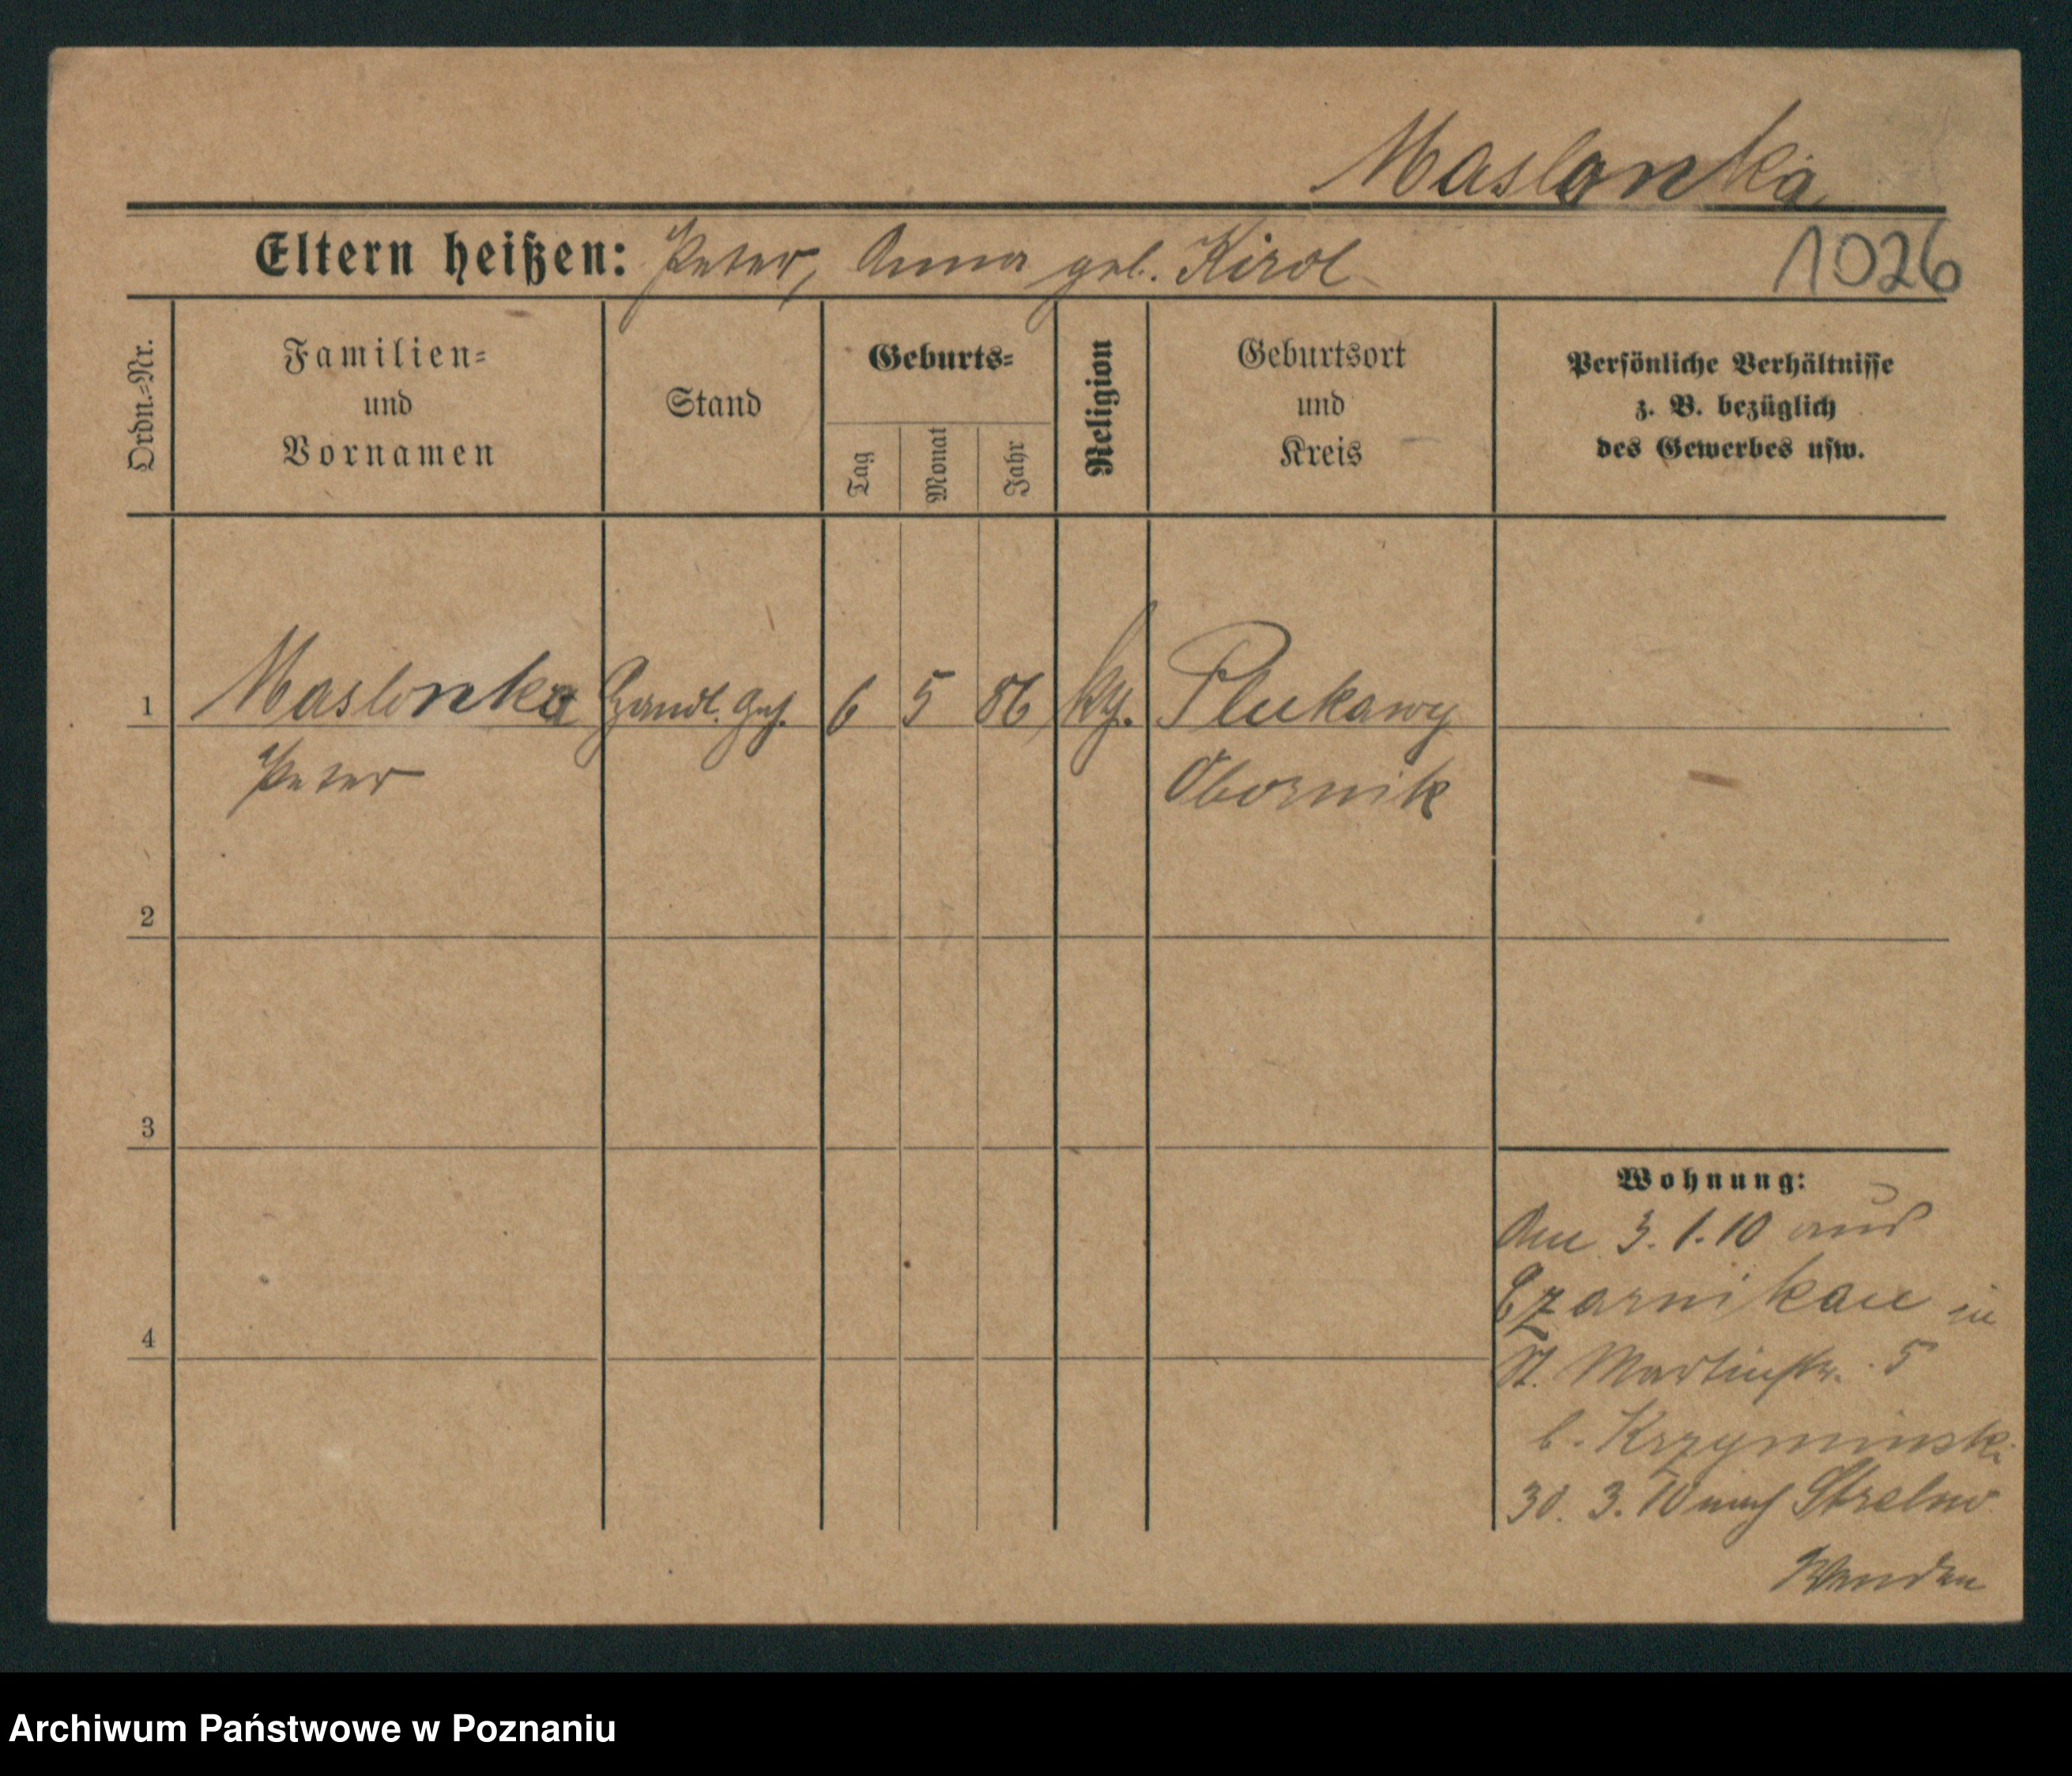 Maslonka
Eltern heißen: Peter, Anna geb. Kirol
1026
Ordn.-Nr.
Familien-
und
Vornamen
Stand
Geburts-
Tag
Monat
Jahr
Religion
Geburtsort
und
Kreis
Persönliche Verhältnisse
z. B. bezüglich
des Gewerbes usw.
1 Maslonka Handl. Geh. 6 5 86 Plukawy
Peter Obornik
2
3
4
Wohnung:
Am 3.1.10 aus
Czarnikau in
St. Martinstr. 5
b. Krzyminski
30. 3. 10 nach Strelno
Archiwum Państwowe w Poznaniu